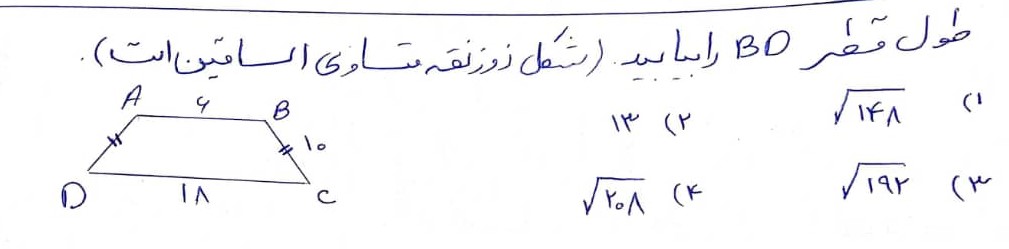 طول قطر BD را بیابید. (شکل ذوزنقه متساوی الساقین است).
۱) √۱۴۸ ۲) ۱۳
۳) √۱۹۲ ۴) √۲۰۸
A ۶ B
۱۰
D ۱۸ C